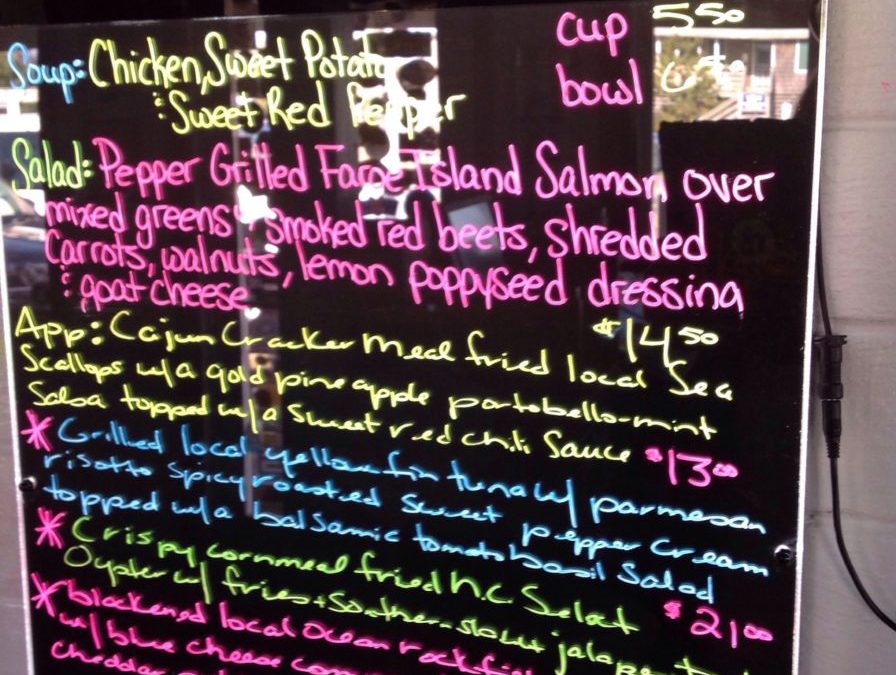 Soup: Chicken, Sweet Potato
& Sweet Red Pepper
cup 5.50
bowl 6.50
Salad: Pepper Grilled Faroe Island Salmon over
mixed greens & smoked red beets, shredded
carrots, walnuts, lemon poppyseed dressing
& goat cheese
$14.50
App: Cajun Cracker meal fried local Sea
Scallops w/a gold pineapple portobello-mint
Salsa topped w/a Sweet red chili Sauce $13.00
* Grilled local yellowfin tuna w/ parmesan
risotto spicy roasted sweet pepper cream
topped w/a balsamic tomato basil Salad
* Crispy cornmeal fried N.C. Select $21.00
Oyster w/ fries + Southern slaw
* blackened local Ocean
w/ blue cheese
cheddar